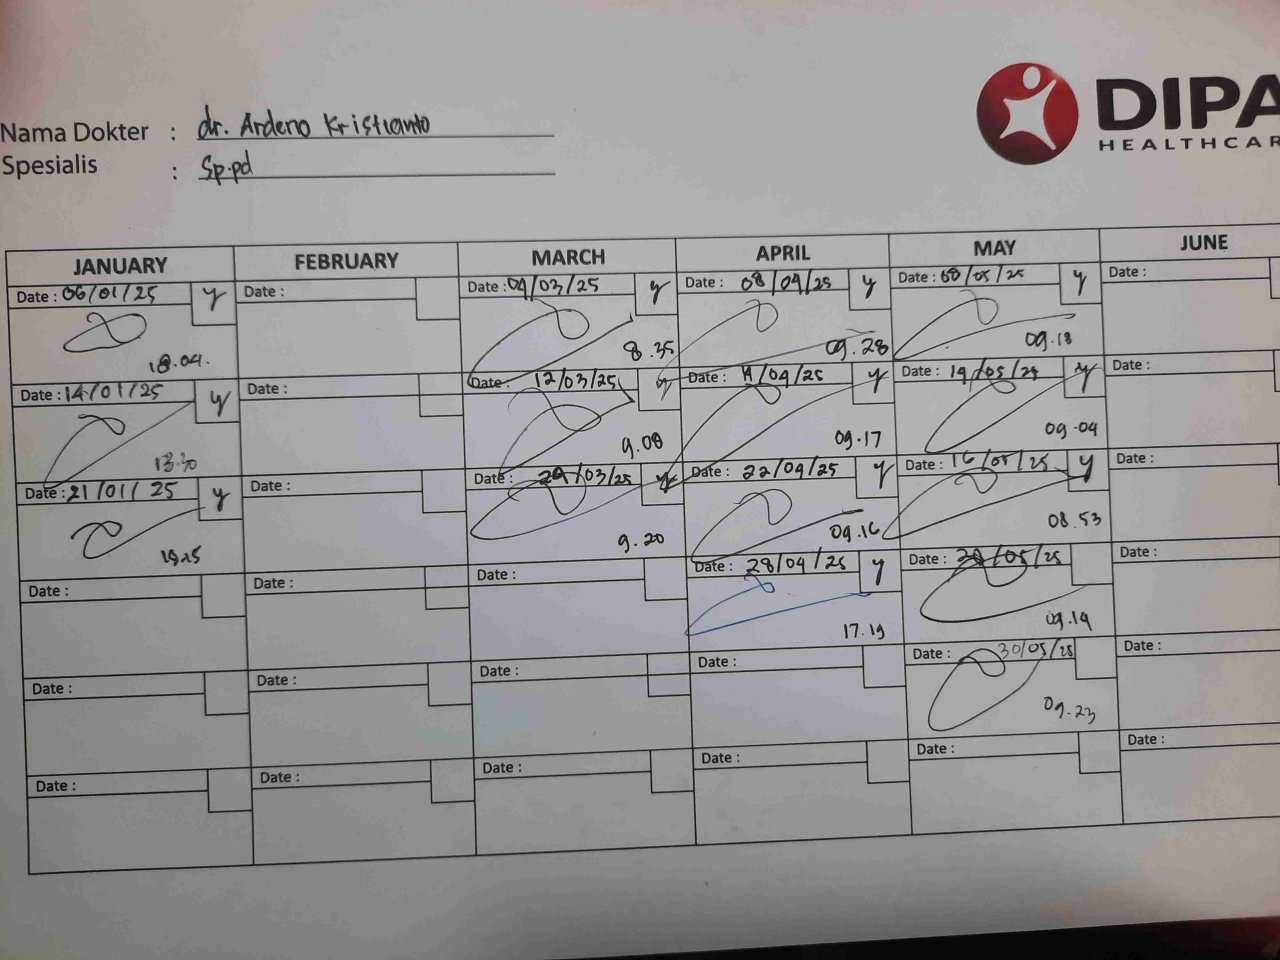 DIPA
HEALTHCAR
Nama Dokter : dr. Ardeno Kristianto
Spesialis : Sp.pd
JANUARY FEBRUARY MARCH APRIL MAY JUNE
Date : 06/01/25 y Date : Date : 04/03/25 y Date : 08/04/25 y Date : 08/05/25 y Date :
18.04. 8.35 09.28 09.18
Date : 14/01/25 y Date : Date : 12/03/25 y Date : /04/25 y Date : 14/05/25 y Date :
13.30 9.08 09.17 09.04
Date : 21/01/25 y Date : Date : /03/25 y Date : 22/04/25 y Date : 16/05/25 y Date :
9.20 09.16 08.53
Date : Date : Date : Date : 28/04/25 y Date : /05/25 Date :
17.19 09.14
Date : Date : Date : Date : Date : 30/05/25 Date :
09.23
Date : Date : Date : Date : Date : Date :